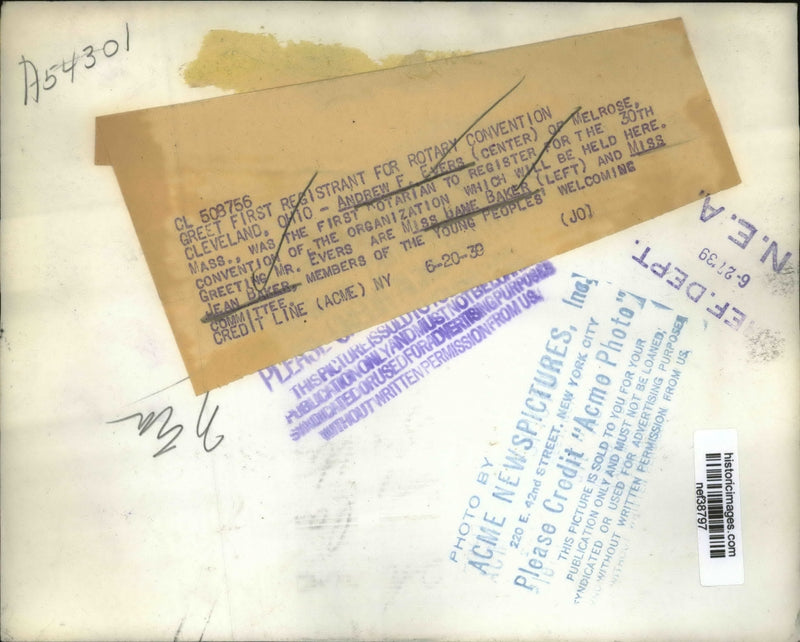 A54301
CL 503756
GREET FIRST REGISTRANT FOR ROTARY CONVENTION
CLEVELAND, OHIO - ANDREW F. EVERS (CENTER) OF MELROSE,
MASS., WAS THE FIRST ROTARIAN TO REGISTER FOR THE 30TH
CONVENTION OF THE ORGANIZATION WHICH WILL BE HELD HERE.
GREETING MR. EVERS ARE MISS BAKER (LEFT) AND MISS
JEAN BAKER, MEMBERS OF THE YOUNG PEOPLES' WELCOMING
COMMITTEE.
CREDIT LINE (ACME) NY 6-20-39 (JO)
N.E.A.
6-27-39
EF. DEPT.
PLEASE
THIS PICTURE IS SOLD TO
PUBLICATION ONLY AND MUST NOT BE
SYNDICATED OR USED FOR ADVERTISING PURPOSES
WITHOUT WRITTEN PERMISSION FROM US.
PHOTO BY
ACME NEWSPICTURES, Inc.
220 E. 42nd STREET, NEW YORK CITY
Please Credit "Acme Photo"
THIS PICTURE IS SOLD TO YOU FOR YOUR
PUBLICATION ONLY AND MUST NOT BE LOANED,
SYNDICATED OR USED FOR ADVERTISING PURPOSES
WITHOUT WRITTEN PERMISSION FROM US
historicimages.com
nef38797